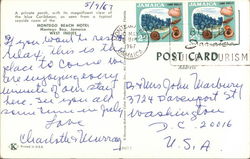 5/9/67
A private porch, with its magnificent view of
the blue Caribbean, as seen from a typical
seaside room of the
MONTEGO BEACH HOTEL
Montego Bay, Jamaica
WEST INDIES
If you want to rest &
relax, this is the
place to come. We
are enjoying every
minute of our stay
here. See you all
sometime in July
Love
Charlotte Murray
JAMAICA
JAMAICA
1967
POST CARD
TOURISM
Dr & Mrs John Marbury
3724 Davenport St
Washington
D.C. 20016
U.S.A